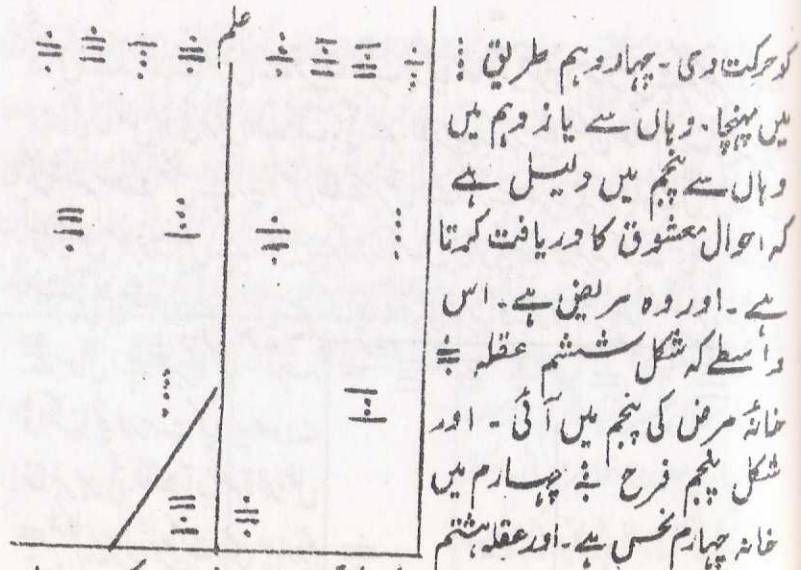 علم
کو حرکت دی - چہاردہم طریق ⁞
میں پہنچا - وہاں سے یازدہم میں
وہاں سے پنجم میں دلیل ہے
کہ احوال معشوق کا دریافت کرتا
ہے - اور وہ مریض ہے - اس
واسطے کہ شکل ششم عقلہ
خانہٴ مرض کی پنجم میں آئی - اور
شکل پنجم فرح چہارم میں
خانہ چہارم نحس ہے - اور عقلہ ہشتم